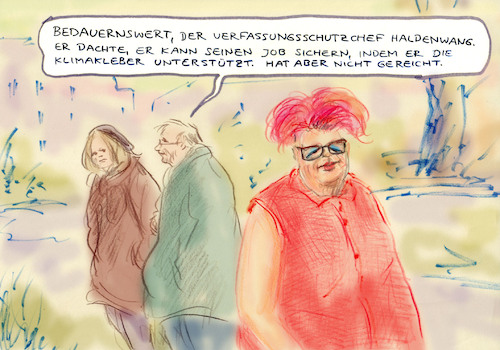 BEDAUERNSWERT, DER VERFASSUNGSSCHUTZCHEF HALDENWANG.
ER DACHTE, ER KANN SEINEN JOB SICHERN, INDEM ER DIE
KLIMAKLEBER UNTERSTÜTZT. HAT ABER NICHT GEREICHT.